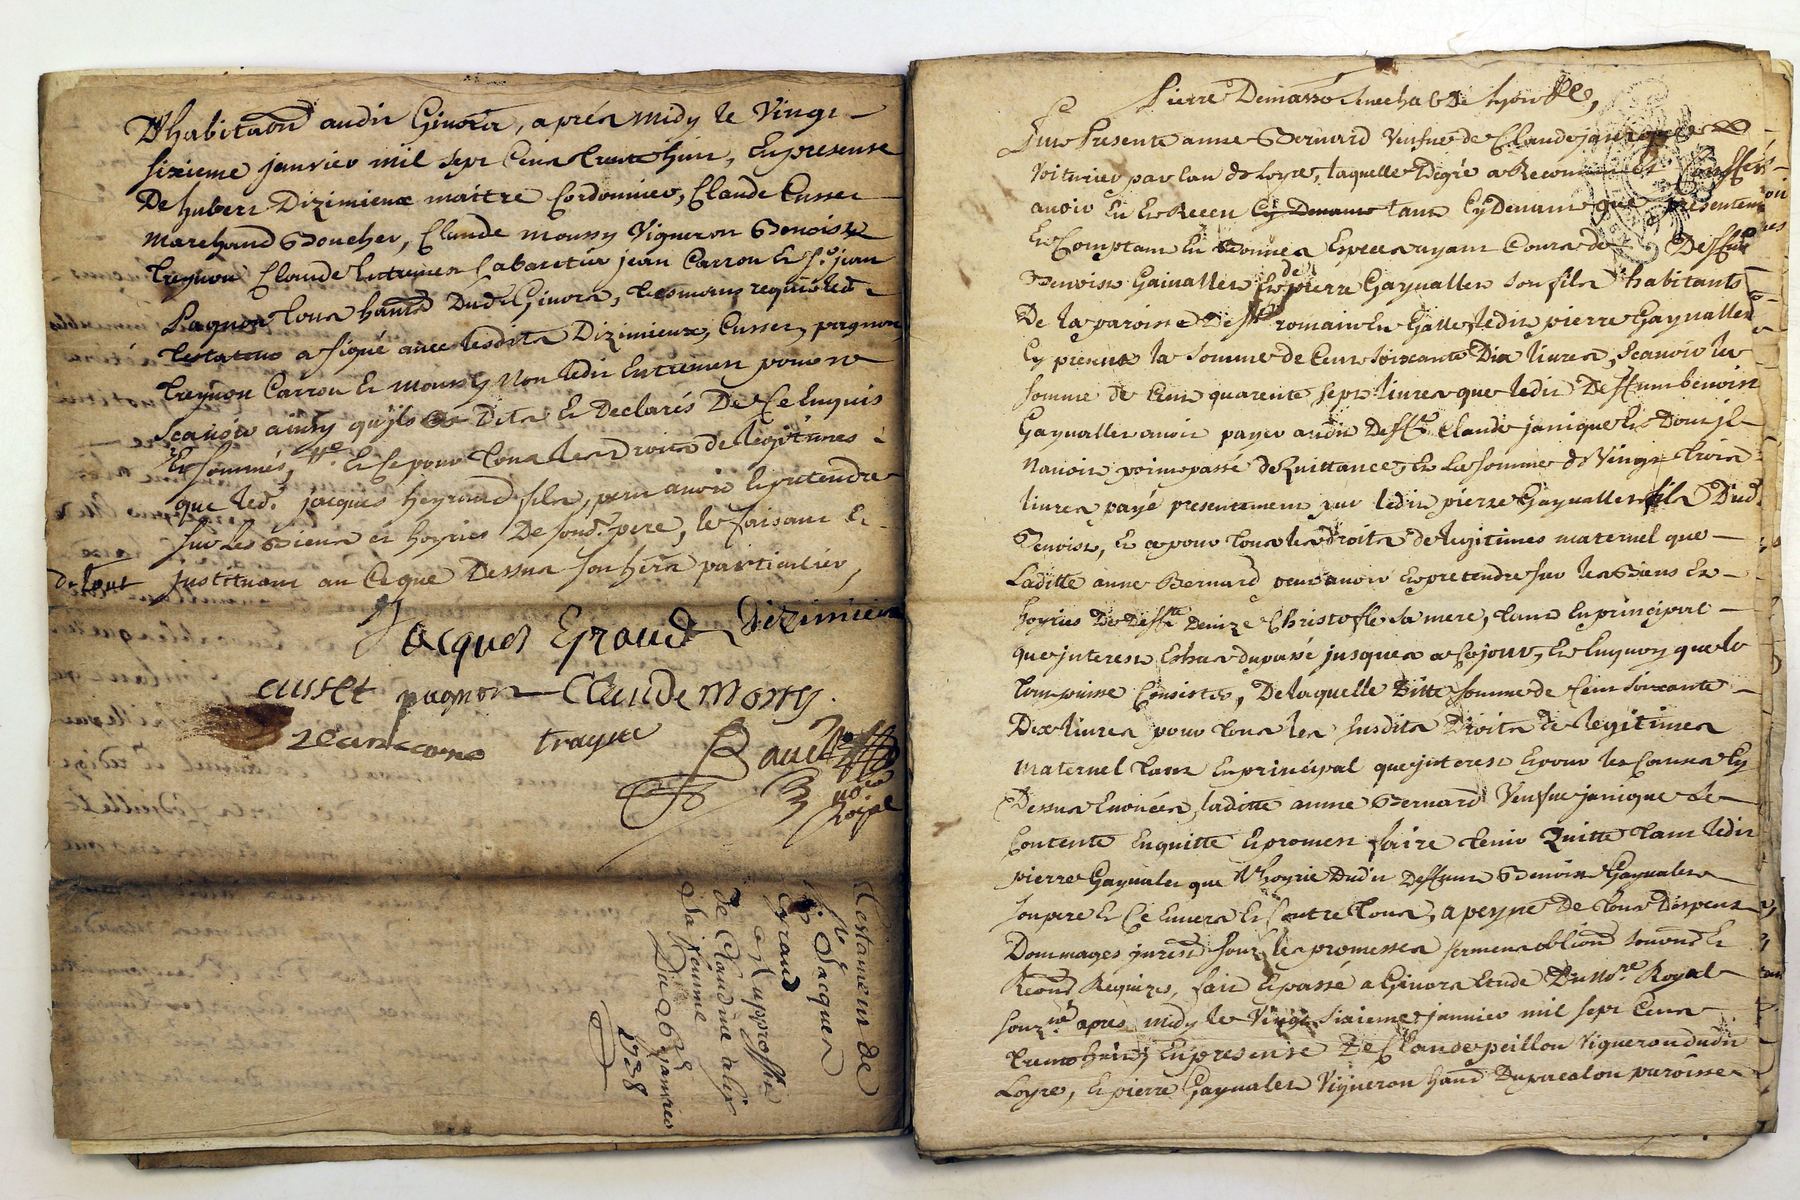 D'habitaōn audit Givors, aprés midy le Vingt
sixieme janvier mil sept Cens trente huit, En presence
De hubert Dizimieux maitre Cordonnier, Claude Cusset
Marchand Boucher, Claude moussy Vigneron Benoist
treynou Claude Cabaretier jean Carron Et Sr. jean
pagnon tous dud. Givors, tesmoins requis led.
testateur a signé avec lesdits Dizimieux, Cusset, pagnon
treynou Carron Et moussy non ledit pour ne
Scavoir ainsy qu'ils Dits Et Declarés De Ce Enquis
Et Sommés, Et Ce pour tous les Droits de legitimes
que led. jacques heyraud fils, peut avoir Et pretendre
Sur les Biens et hoyries De sond. pere, le faisant Et
De tout jnstituant au Ce que Dessus son particulier,
Jacques Eyraud Dizimieux
cusset pagnon Claude Morssy.
Jean carro
Royal
testament de
Sr. Jacques
Eyraud
de Claudine alix
Sa femme
Du 26e janvier
1738
Pierre
Fut Presente anne Bernard Veufve de Claude janique
Voiturier par Eau de Loyre, laquelle De gré a Reconnu Et Confessé
avoir Eu Et Receu Cy Devant tant Cy Devant que presentement
En Comptant Et Bonnes Especes ayant Cours de Deffunt
Benoist Gaynallet Et de pierre Gaynallet son fils habitants
De la paroisse De St. romain En Galle ledit pierre Gaynallet
Cy present la Somme de Cent Soixante Dix livres, Scavoir la
somme de Cent quarente sept livres que ledit Deffunt benoist
Gaynallet avoit payé audit Defft. Claude janique Et Dont jl
n'avoit point passé de Quittance, Et la somme de Vingt trois
livres payé presentement par ledit pierre Gaynallet fils Dud.
Benoist, Et ce pour tous les droits de legitimes maternel que
Laditte anne Bernard peut avoir Et pretendre sur les Biens Et
hoyries De Deffte. Denize Christofle sa mere, tant En principal
que jnterest Eschus du passé jusques a Ce jour, Et En quoy que le
tout puisse Consister, De laquelle Ditte somme de Cent Soixante
Dix livres pour tous les susdits Droits de legitimes
maternel tant En principal que jnterest Et pour les Causes Cy
Dessus Enoncées, laditte anne Bernard Veufve janique Se
Contente En quitte Et promet faire tenir Quitte tant ledit
pierre Gaynallet que l'hoyrie Dudit Deffunt Benoist Gaynallet
son pere Et Ce Envers Et Contre tous, a peyne De tous Despens
Dommages jnterests sous les promesses serment
Requises, fait Et passé a Givors Etude Du Nore. Royal
souz.né apres midy le Vingt Sixieme janvier mil sept Cens
trente huit, En presence De Claude peillon Vigneron dudit
Loyre, Et pierre Gaynallet Vigneron paroisse